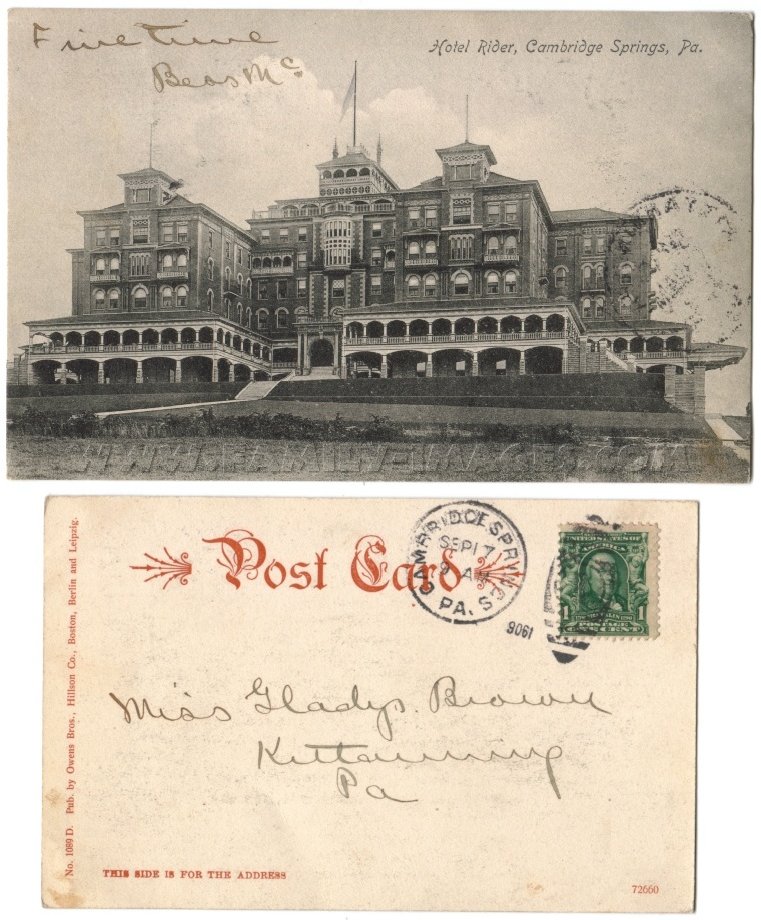 Fine Time
Hotel Rider, Cambridge Springs, Pa.
Bess Mc
WWW.FAMILY-IMAGES.COM
No. 1089 D. Pub. by Owens Bros., Hillson Co., Boston, Berlin and Leipzig.
Post Card
CAMBRIDGE SPRINGS
SEP 17
AM
PA.
1906
UNITED STATES OF AMERICA
1 1
FRANKLIN
POSTAGE
ONE CENT
Miss Gladys Brown
Kittanning
Pa
THIS SIDE IS FOR THE ADDRESS
72660